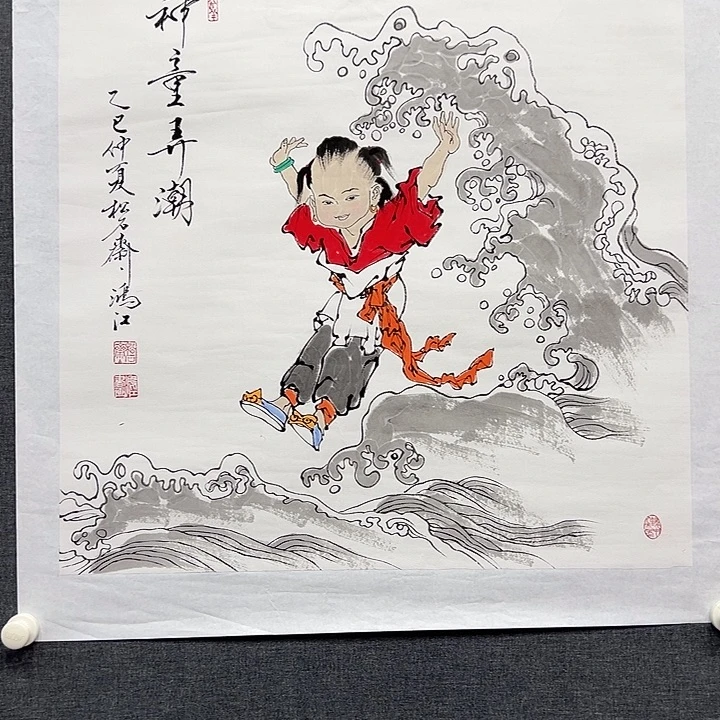 神童弄潮
乙巳仲夏松石斋鸿江